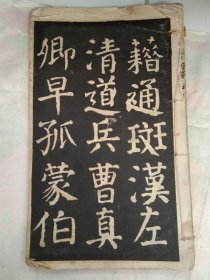 籍通班漢左
清道兵曹真
卿早孤蒙伯